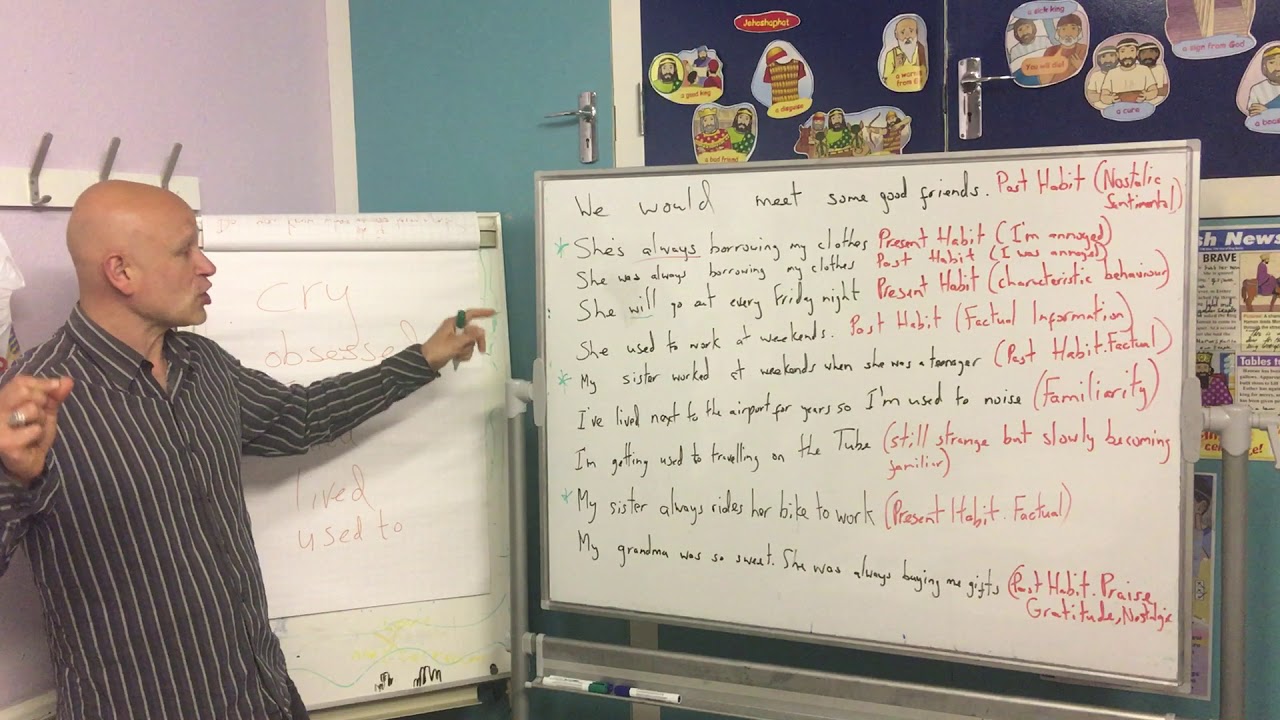 cry
obsessed
lived
used to
Jehoshaphat
a good king
a disguise
a bad friend
a sick king
You will die!
a cure
a sign from God
We would meet some good friends. Past Habit (Nostalic
Sentimental)
* She's always borrowing my clothes Present Habit (I'm annoyed)
She was always borrowing my clothes Past Habit (I was annoyed)
She will go out every Friday night Present Habit (characteristic behaviour)
She used to work at weekends. Past Habit (Factual Information)
* My sister worked at weekends when she was a teenager (Past Habit. Factual)
I've lived next to the airport for years so I'm used to noise (Familiarity)
I'm getting used to travelling on the Tube (still strange but slowly becoming
familiar)
* My sister always rides her bike to work (Present Habit. Factual)
My grandma was so sweet. She was always buying me gifts (Past Habit. Praise
Gratitude, Nostalgic
sh News
BRAVE
Tables t